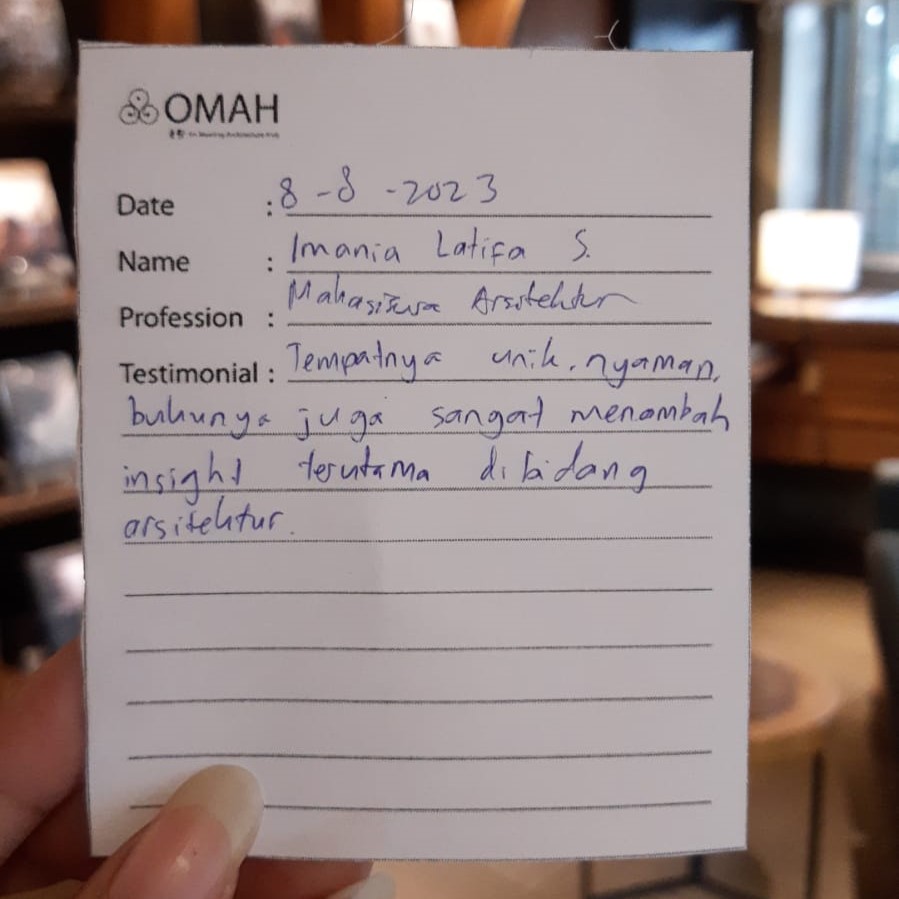 OMAH
Date : 8-8-2023
Name : Imania Latifa S.
Profession : Mahasiswa Arsitektur
Testimonial : Tempatnya unik, nyaman,
bukunya juga sangat menambah
insight terutama dibidang
arsitektur.